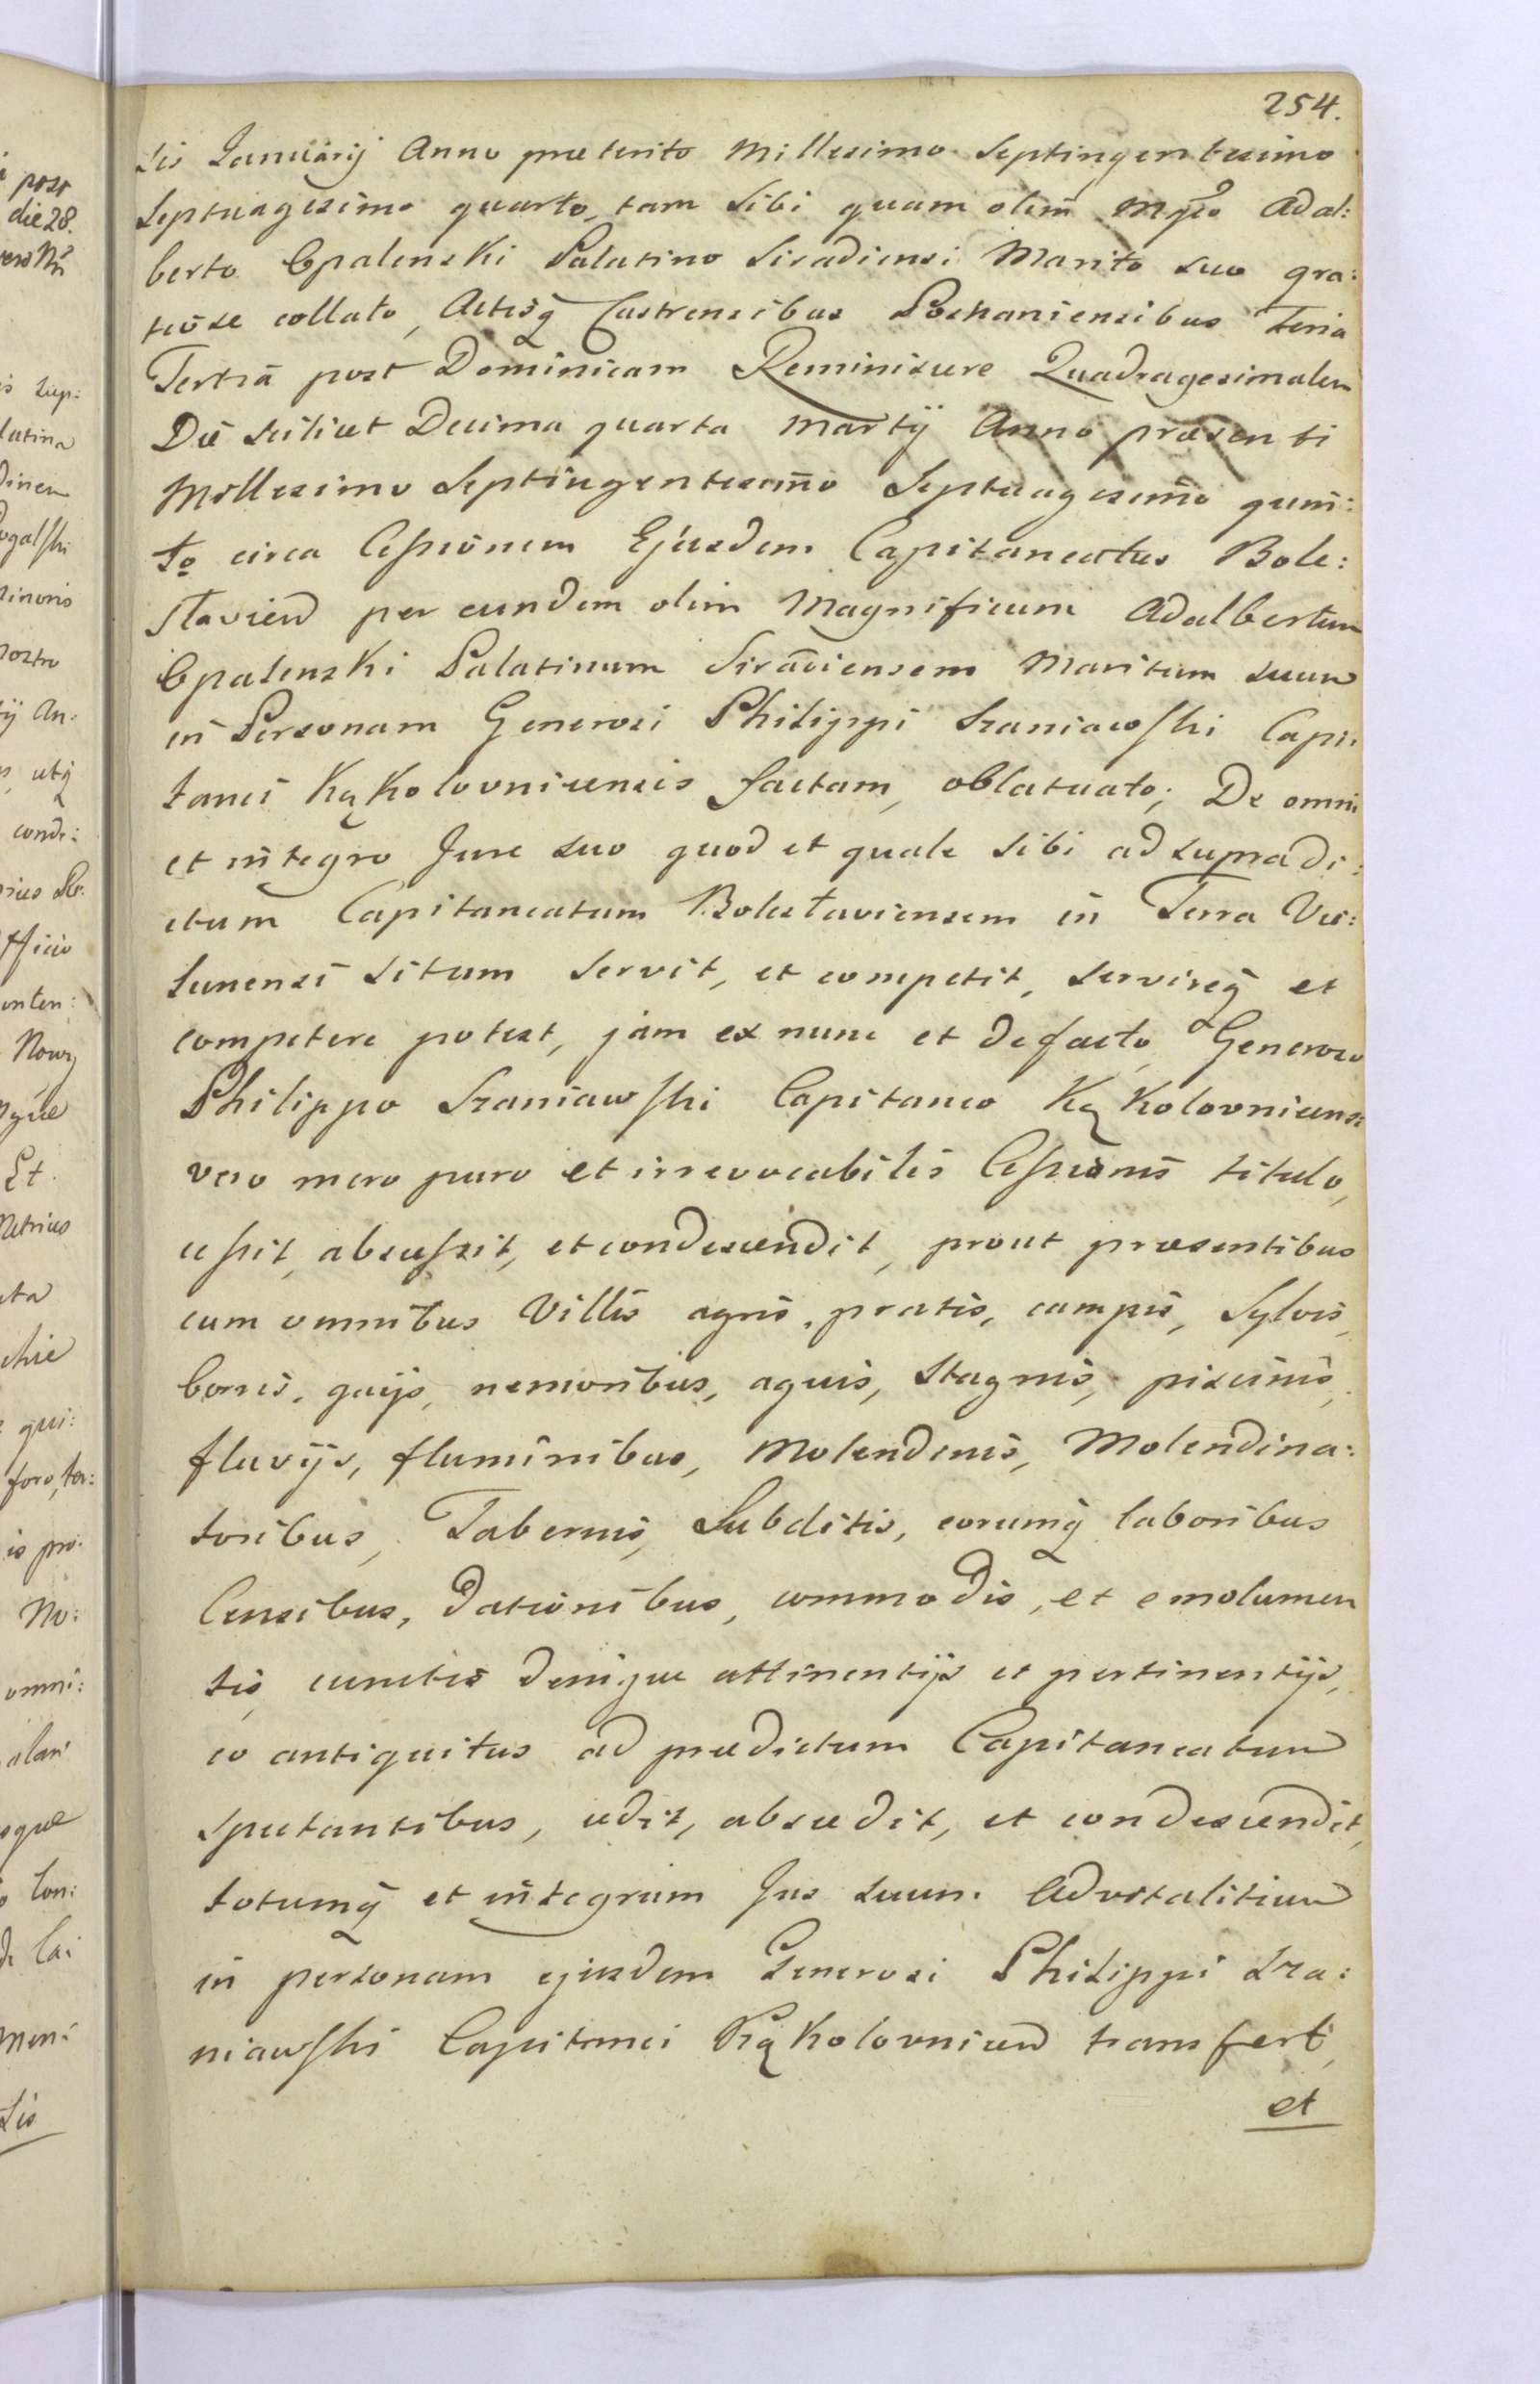 254.
sis Januarij Anno præterito Millesimo Septingentesimo
Septuagesimo quarto, tam sibi quam olim Mgco Adal:
berto Opalenski Palatino Siradiensi Marito suo gra:
tiose collato, Actisq Castrensibus Posnaniensibus Feria
Tertia post Dominicam Reminiscere Quadragesimalem
Die scilicet Decima quarta Martij Anno præsenti
Millesimo Septingentesimo Septuagesimo quin:
to circa Cessionem Ejusdem Capitaneatus Bole:
slavien per eundem olim Magnificum Adalbertum
Opalenski Palatinum Siradiensem Maritum suum
in Personam Generosi Philippi Szaniawski Capi:
tanei Kąkolovnicensis factam, oblatuato; De omni
et integro Jure suo quod et quale sibi ad supradi:
ctum Capitaneatum Boleslaviensem in Terra Vie:
lunensi situm servit, et competit, servireq et
competere potest, jam ex nunc et de facto Generoso
Philippo Szaniawski Capitaneo Kąkolovnicensi
vero mero puro et irrevocabilis Cessionis titulo,
cessit, abscessit, et condescendit, prout præsentibus
cum omnibus Villis agris, pratis, campis, Sylvis,
borris, gaijs, nemoribus, aquis, stagnis, piscinis,
fluvijs, fluminibus, Molendinis, Molendina:
toribus, Tabernis, Subditis, eorumq laboribus
Censibus, Dationibus, commodis, et emolumen
tis, cunctis denique attinentijs et pertinentijs,
eo antiquitus ad prædictum Capitaneatum
spectantibus, cedit, abscedit, et condescendit,
totumq et integrum Jus suum Advitalitium
in personam ejusdem Generosi Philippi Sza:
niawski Capitanei Kąkolovnicen transfert,
et